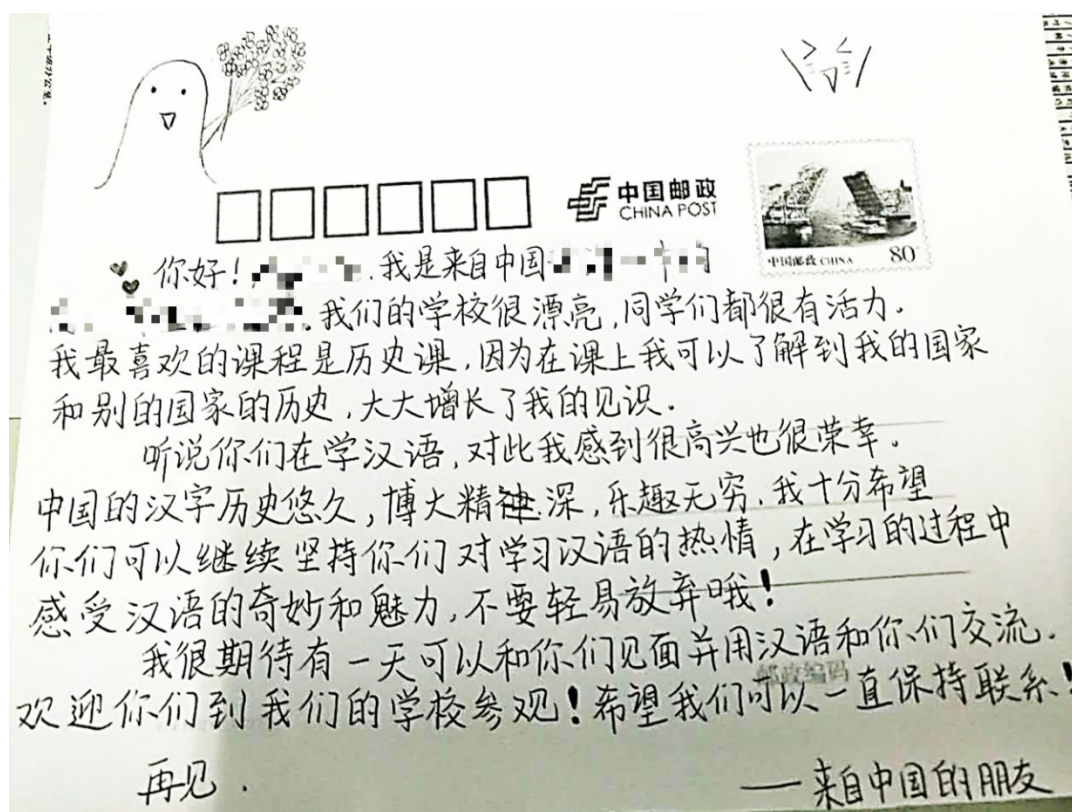 中国邮政
CHINA POST
中国邮政 CHINA 80
你好! 我是来自中国
我们的学校很漂亮,同学们都很有活力.
我最喜欢的课程是历史课,因为在课上我可以了解到我的国家
和别的国家的历史,大大增长了我的见识.
听说你们在学汉语,对此我感到很高兴也很荣幸.
中国的汉字历史悠久,博大精深,乐趣无穷.我十分希望
你们可以继续坚持你们对学习汉语的热情,在学习的过程中
感受汉语的奇妙和魅力,不要轻易放弃哦!
我很期待有一天可以和你们见面并用汉语和你们交流.
邮政编码
欢迎你们到我们的学校参观!希望我们可以一直保持联系!
再见.
——来自中国的朋友